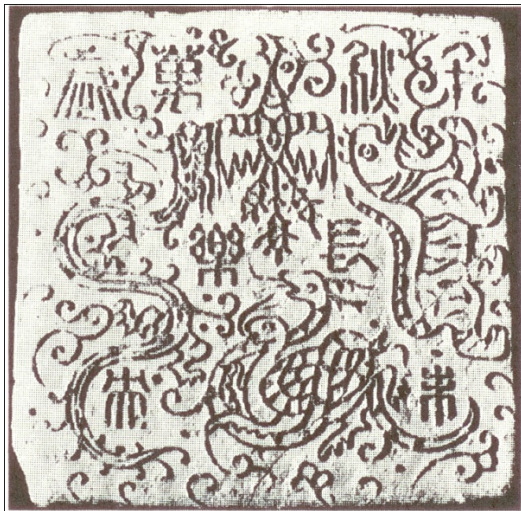 千秋萬歲
長樂
未央